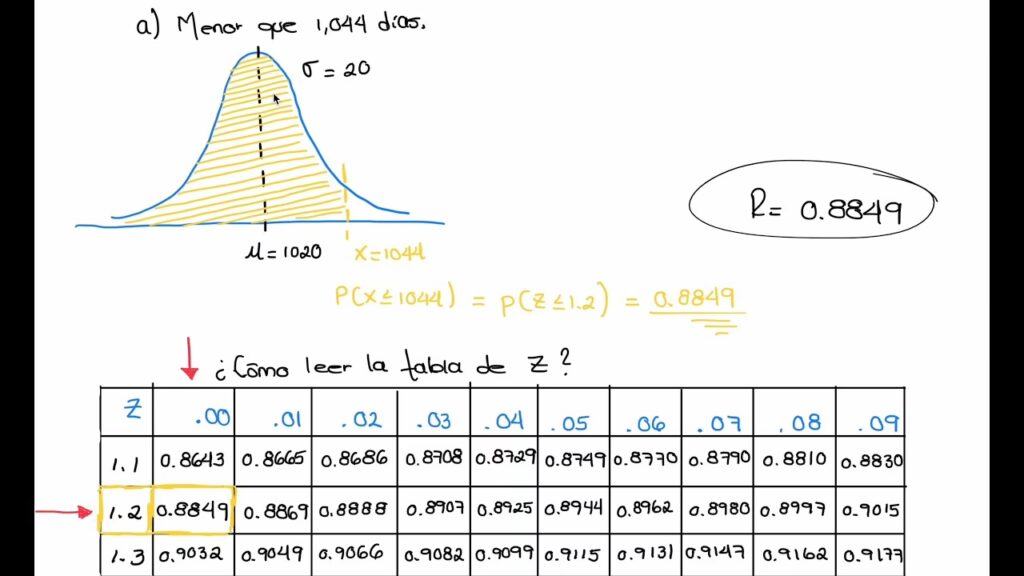 a) Menor que 1,044 días.
σ = 20
R = 0.8849
μ = 1020 x = 1044
P(x ≤ 1044) = P(z ≤ 1.2) = 0.8849
¿Cómo leer la tabla de Z?
Z .00 .01 .02 .03 .04 .05 .06 .07 .08 .09
1.1 0.8643 0.8665 0.8686 0.8708 0.8729 0.8749 0.8770 0.8790 0.8810 0.8830
1.2 0.8849 0.8869 0.8888 0.8907 0.8925 0.8944 0.8962 0.8980 0.8997 0.9015
1.3 0.9032 0.9049 0.9066 0.9082 0.9099 0.9115 0.9131 0.9147 0.9162 0.9177